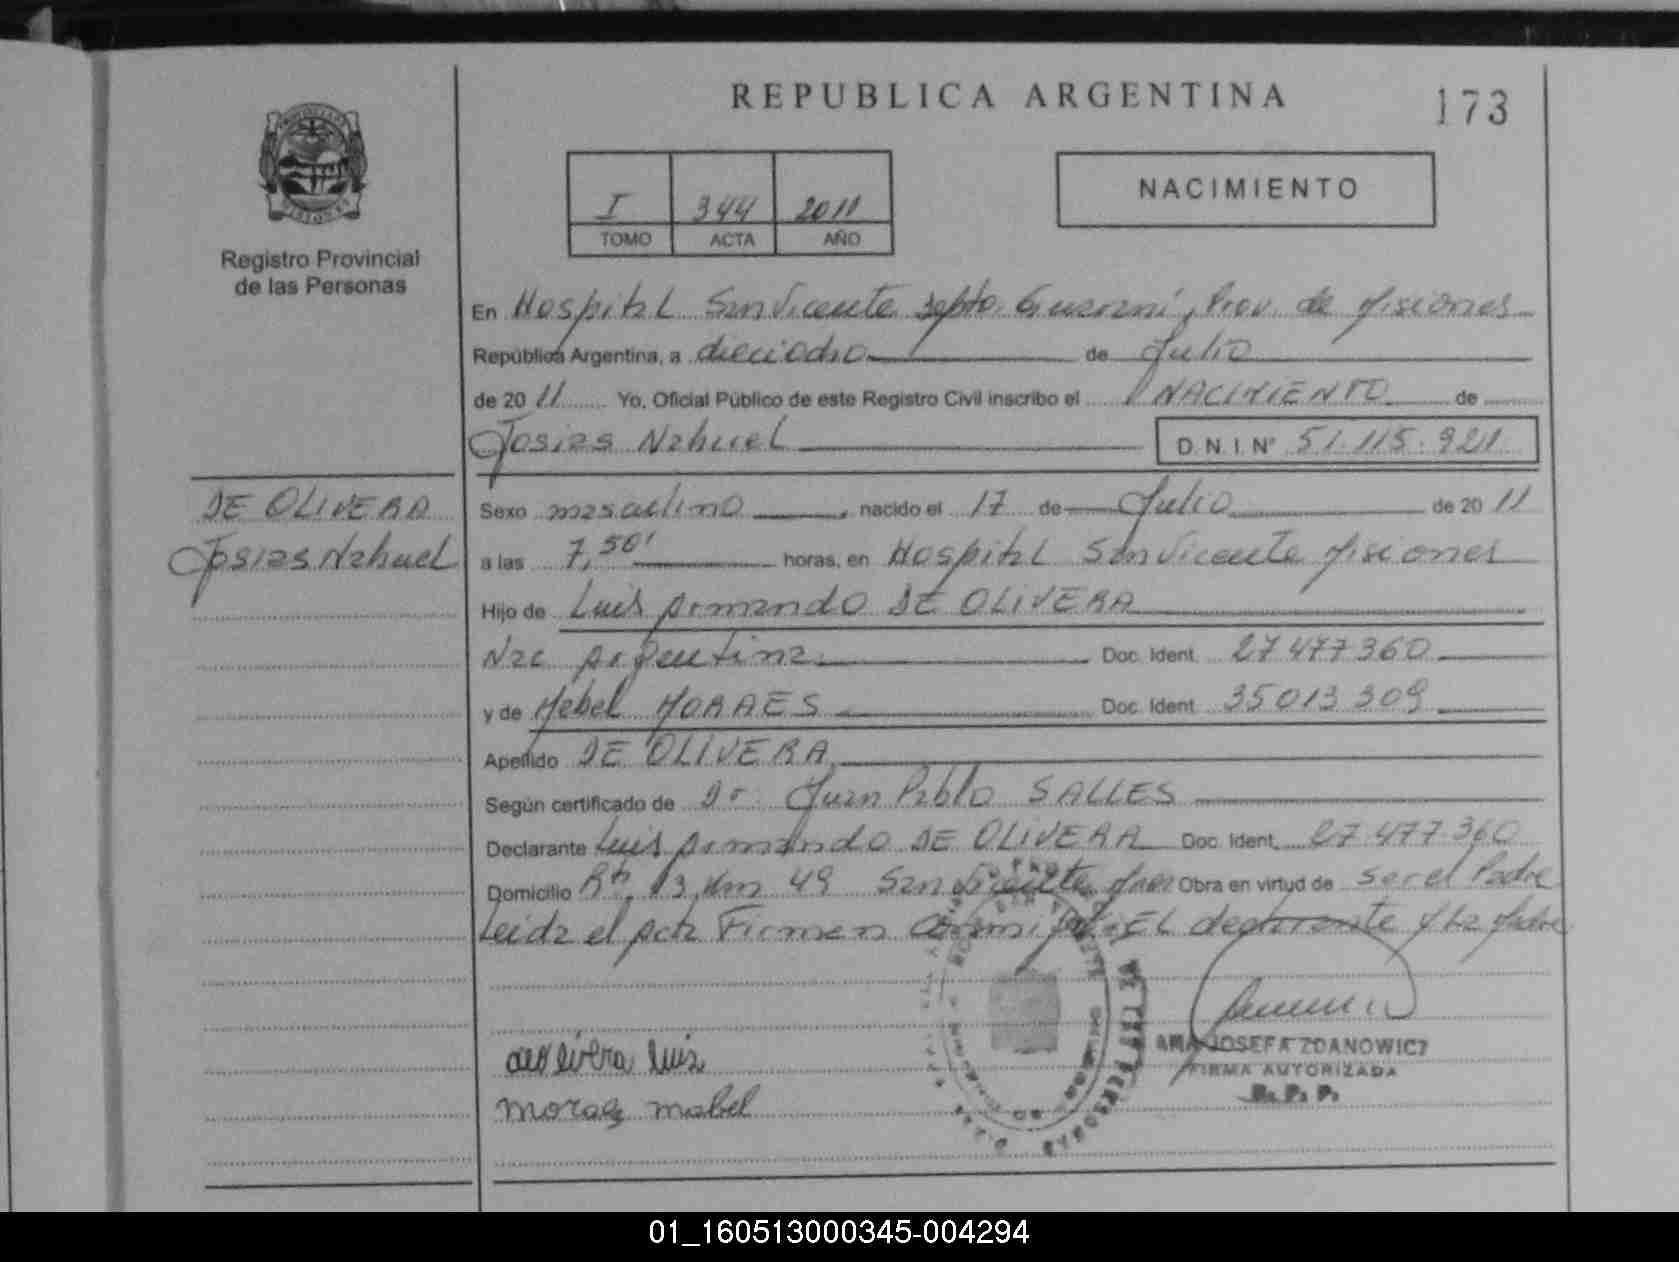 REPUBLICA ARGENTINA
173
PROVINCIA DE MISIONES
Registro Provincial
de las Personas
I 344 2011
TOMO ACTA AÑO
NACIMIENTO
En Hospital San Vicente Dpto. Guaraní, Prov. de Misiones
República Argentina, a dieciocho de Julio
de 2011 Yo, Oficial Público de este Registro Civil inscribo el NACIMIENTO de
Josias Nahuel D.N.I.Nº 51.115.921
DE OLIVERA
Josias Nahuel
Sexo masculino, nacido el 17 de Julio de 2011
a las 7,50' horas, en Hospital San Vicente Misiones
Hijo de Luis Armando DE OLIVERA
Nac Argentina Doc. Ident. 27477360
y de Mabel MORAES Doc. Ident. 35013309
Apellido DE OLIVERA
Según certificado de Dr Juan Pablo SALLES
Declarante Luis Armando DE OLIVERA Doc. Ident. 27.477.360
Domicilio Rta 13 Km 49 San Vicente Mnes Obra en virtud de Ser el Padre
Leida el Acta Firman conmigo EL declarante y La Madre
deolivera luis
moraes mabel
ANA JOSEFA ZDANOWICZ
FIRMA AUTORIZADA
R. P. P.
DE LAS PERSONAS
01_160513000345-004294